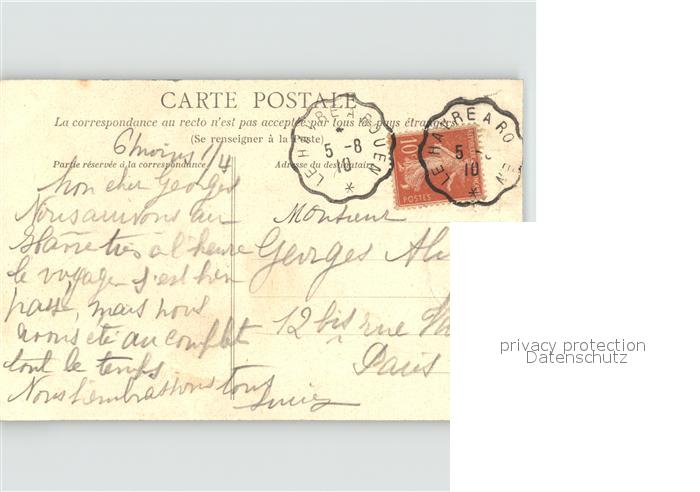 CARTE POSTALE
La correspondance au recto n'est pas acceptée par tous les pays étrangers
(Se renseigner à la Poste)
6h moins 1/4
Partie réservée à la correspondance
Adresse du destinataire
LE HAVRE A ROUEN
5-8
10
10
POSTES
LE HAVRE A RO N
5
10
Mon cher Georges
Nous arrivons au
Havre très à l'heure
le voyage s'est bien
passé, mais nous
avons été au complet
tout le temps
Nous t'embrassons tous
Monsieur
Georges
12 bis rue
Paris
privacy protection
Datenschutz